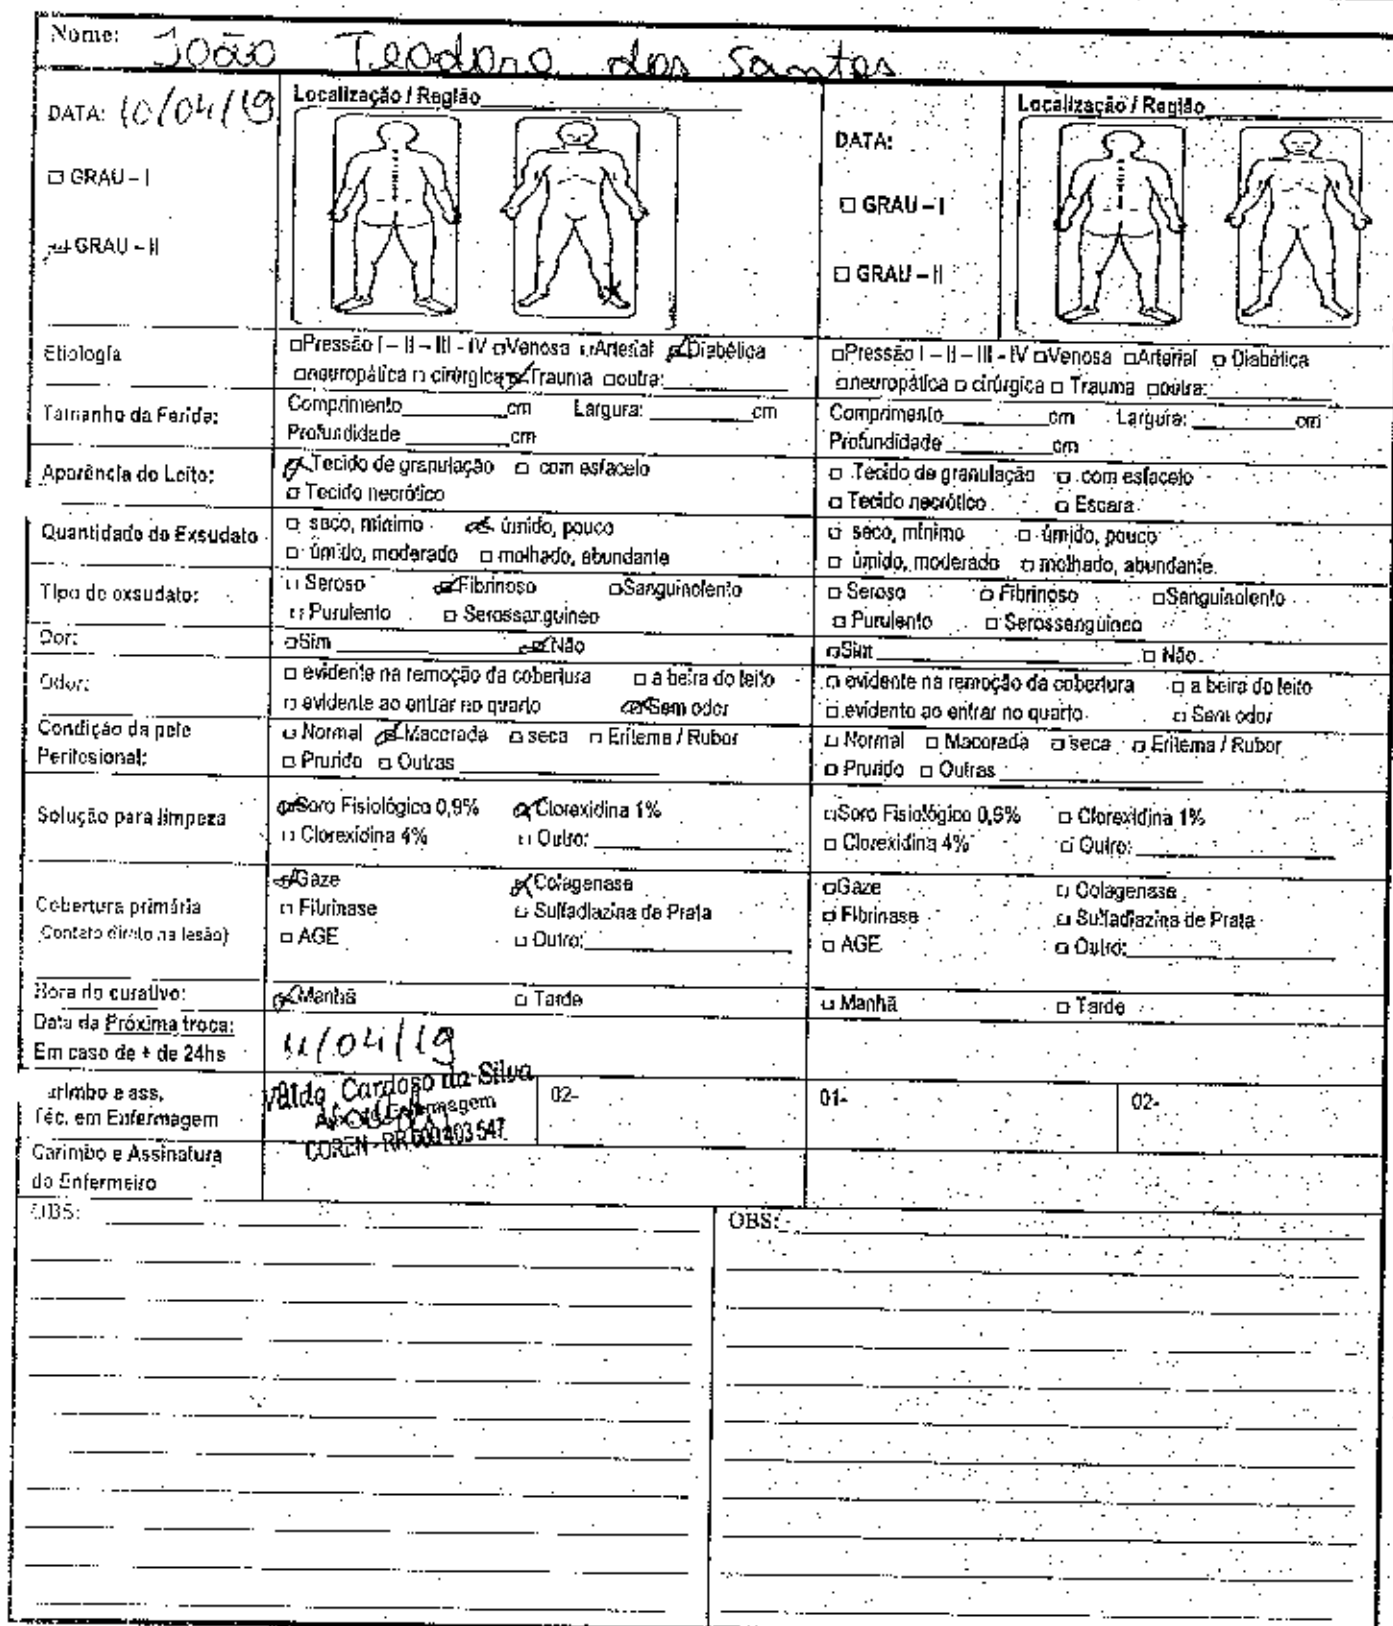 Nome: João Teodoro dos Santos
DATA: 10/04/19
Localização / Região
□ GRAU – I
GRAU – II
DATA:
Localização / Região
□ GRAU – I
□ GRAU – II
Etiologia
□Pressão I – II – III - IV □Venosa □Arterial ☒Diabética
□neuropática □ cirúrgica ☒Trauma □outra:
□Pressão I – II – III - IV □Venosa □Arterial □ Diabética
□neuropática □ cirúrgica □ Trauma □outra:
Tamanho da Ferida:
Comprimento cm Largura: cm
Profundidade cm
Comprimento cm Largura: cm
Profundidade cm
Aparência do Leito:
☒Tecido de granulação □ com esfacelo
□ Tecido necrótico
□ Tecido de granulação □ com esfacelo
□ Tecido necrótico □ Escara
Quantidade de Exsudato
□ seco, mínimo ☒ úmido, pouco
□ úmido, moderado □ molhado, abundante
□ seco, mínimo □ úmido, pouco
□ úmido, moderado □ molhado, abundante.
Tipo de exsudato:
□ Seroso ☒Fibrinoso □Sanguinolento
□ Purulento □ Serossanguíneo
□ Seroso □ Fibrinoso □Sanguinolento
□ Purulento □ Serossanguíneo
Dor:
□Sim ☒Não
□Sim □ Não
Odor:
□ evidente na remoção da cobertura □ a beira do leito
□ evidente ao entrar no quarto ☒Sem odor
□ evidente na remoção da cobertura □ a beira do leito
□ evidente ao entrar no quarto □ Sem odor
Condição da pele
Perilesional:
□ Normal ☒Macerada □ seca □ Eritema / Rubor
□ Prurido □ Outras
□ Normal □ Macerada □ seca □ Eritema / Rubor
□ Prurido □ Outras
Solução para limpeza
☒Soro Fisiológico 0,9% ☒Clorexidina 1%
□ Clorexidina 4% □ Outro:
□Soro Fisiológico 0,9% □ Clorexidina 1%
□ Clorexidina 4% □ Outro:
Cobertura primária
Contato direto na lesão)
☒Gaze ☒Colagenase
□ Fibrinase □ Sulfadiazina de Prata
□ AGE □ Outro:
□Gaze □ Colagenase
□ Fibrinase □ Sulfadiazina de Prata
□ AGE □ Outro:
Hora do curativo:
☒Manhã □ Tarde
□ Manhã □ Tarde
Data da Próxima troca:
Em caso de + de 24hs
11/04/19
arimbo e ass.
Téc. em Enfermagem
Valda Cardoso da Silva
Enfermagem
COREN - RR
02-
01-
02-
Carimbo e Assinatura
do Enfermeiro
OBS:
OBS: